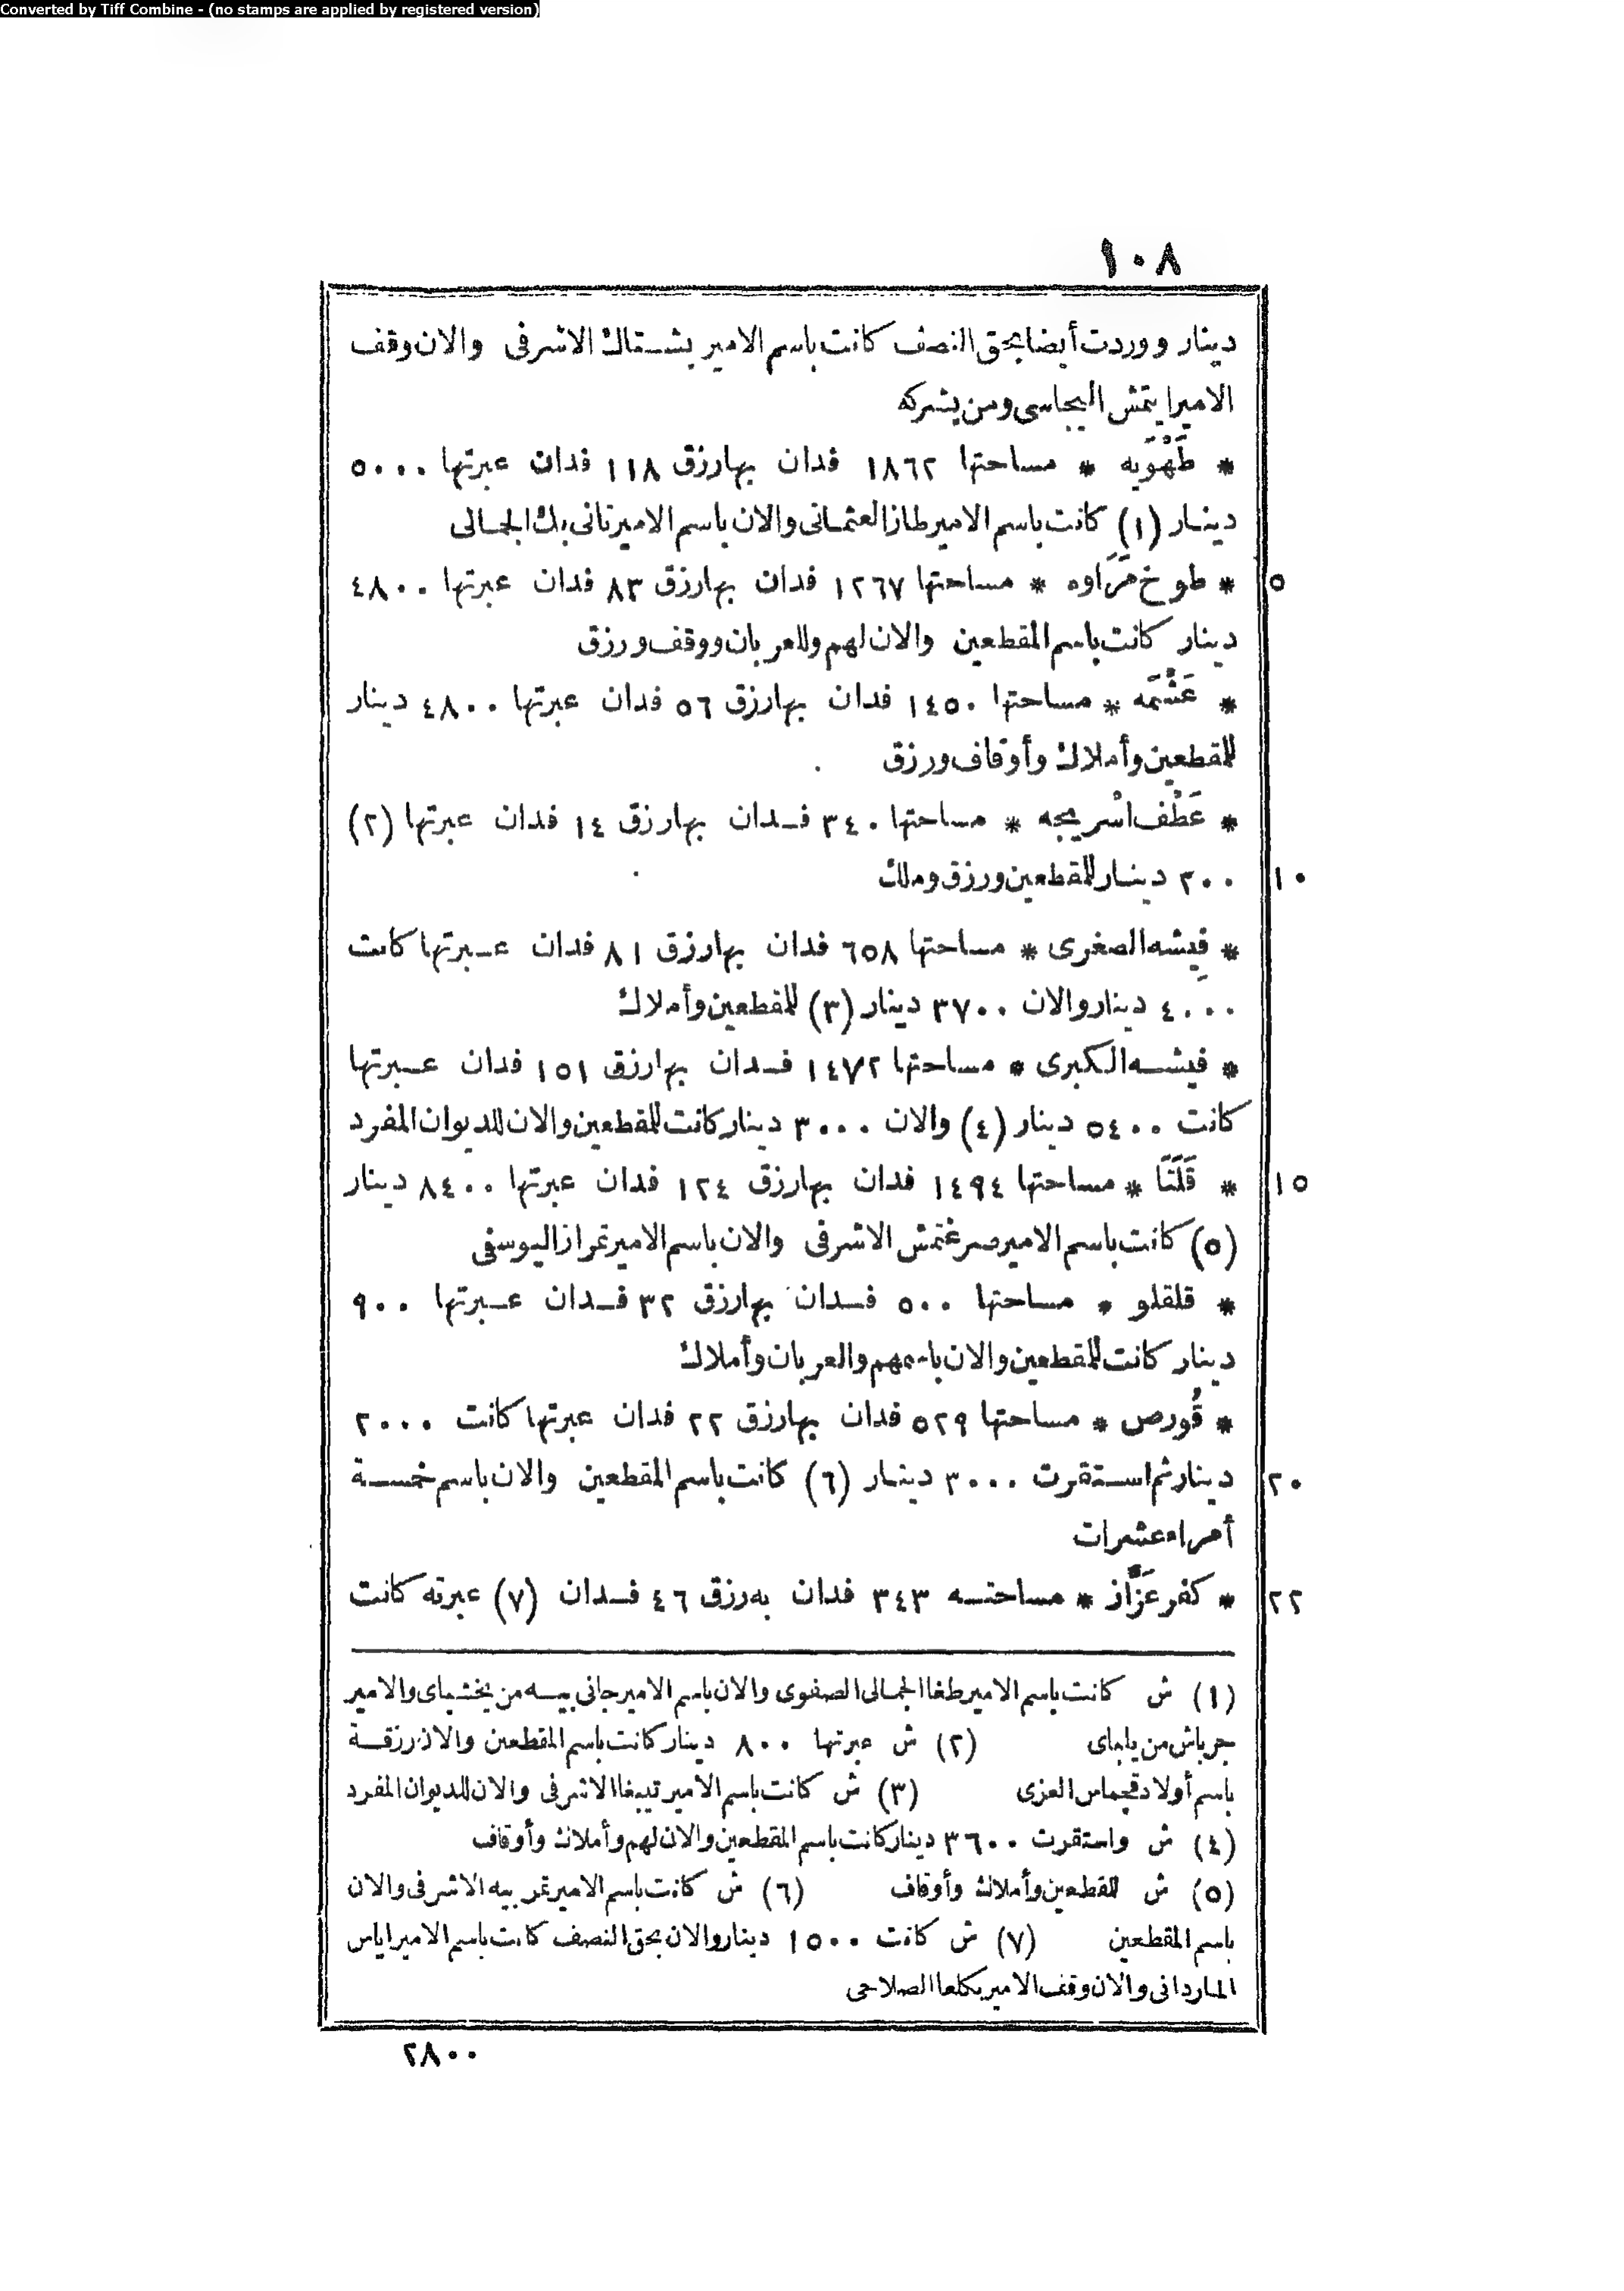 Converted by Tiff Combine - (no stamps are applied by registered version)
١٠٨
دينار ووردت أيضا بحق النصف كانت باسم الامير بشتاك الاشرفى والان وقف
الامير ايتمش البجاسى ومن يشركه
* طَهْوَيه * مساحتها ١٨٦٢ فدان بها رزق ١١٨ فدان عبرتها ٥٠٠٠
دينار (١) كانت باسم الامير طاز العثمانى والان باسم الامير تانى بك الجمالى
٥ * طوخ مَرَاوه * مساحتها ١٢٦٧ فدان بها رزق ٨٣ فدان عبرتها ٤٨٠٠
دينار كانت باسم المقطعين والان لهم وللعربان ووقف ورزق
* عَشْمَه * مساحتها ١٤٥٠ فدان بها رزق ٥٦ فدان عبرتها ٤٨٠٠ دينار
للمقطعين وأملاك وأوقاف ورزق
* عَطْف اسْريجه * مساحتها ٣٤٠ فدان بها رزق ١٤ فدان عبرتها (٢)
١٠ ٣٠٠ دينار للمقطعين ورزق وملك
* فِيشه الصغرى * مساحتها ٦٥٨ فدان بها رزق ٨١ فدان عبرتها كانت
٤٠٠٠ دينار والان ٣٧٠٠ دينار (٣) للمقطعين وأملاك
* فيشه الكبرى * مساحتها ١٤٧٢ فدان بها رزق ١٥١ فدان عبرتها
كانت ٥٤٠٠ دينار (٤) والان ٣٠٠٠ دينار كانت للمقطعين والان للديوان المفرد
١٥ * قَلَتَّا * مساحتها ١٤٩٤ فدان بها رزق ١٢٤ فدان عبرتها ٨٤٠٠ دينار
(٥) كانت باسم الامير صرغتمش الاشرفى والان باسم الامير تمراز اليوسفى
* قلقلو * مساحتها ٥٠٠ فدان بها رزق ٣٢ فدان عبرتها ٩٠٠
دينار كانت للمقطعين والان باسمهم والعربان وأملاك
* قُورص * مساحتها ٥٢٩ فدان بها رزق ٢٢ فدان عبرتها كانت ٢٠٠٠
٢٠ دينار ثم استقرت ٣٠٠٠ دينار (٦) كانت باسم المقطعين والان باسم خمسة
أمراء عشرات
٢٢ * كفر عَزَّاز * مساحته ٣٤٣ فدان به رزق ٤٦ فدان (٧) عبرته كانت
(١) ش كانت باسم الامير طغا الجمالى الصفوى والان باسم الامير جانى بيه من يخشباى والامير
جرباش من يلباى (٢) ش عبرتها ٨٠٠ دينار كانت باسم المقطعين والان رزقة
باسم أولاد قجماس العزى (٣) ش كانت باسم الامير تيبغا الاشرفى والان للديوان المفرد
(٤) ش واستقرت ٣٦٠٠ دينار كانت باسم المقطعين والان لهم وأملاك وأوقاف
(٥) ش للمقطعين وأملاك وأوقاف (٦) ش كانت باسم الامير تمر بيه الاشرفى والان
باسم المقطعين (٧) ش كانت ١٥٠٠ دينار والان بحق النصف كانت باسم الامير اياس
الماردانى والان وقف الامير بكلعا الصلاحى
٢٨٠٠